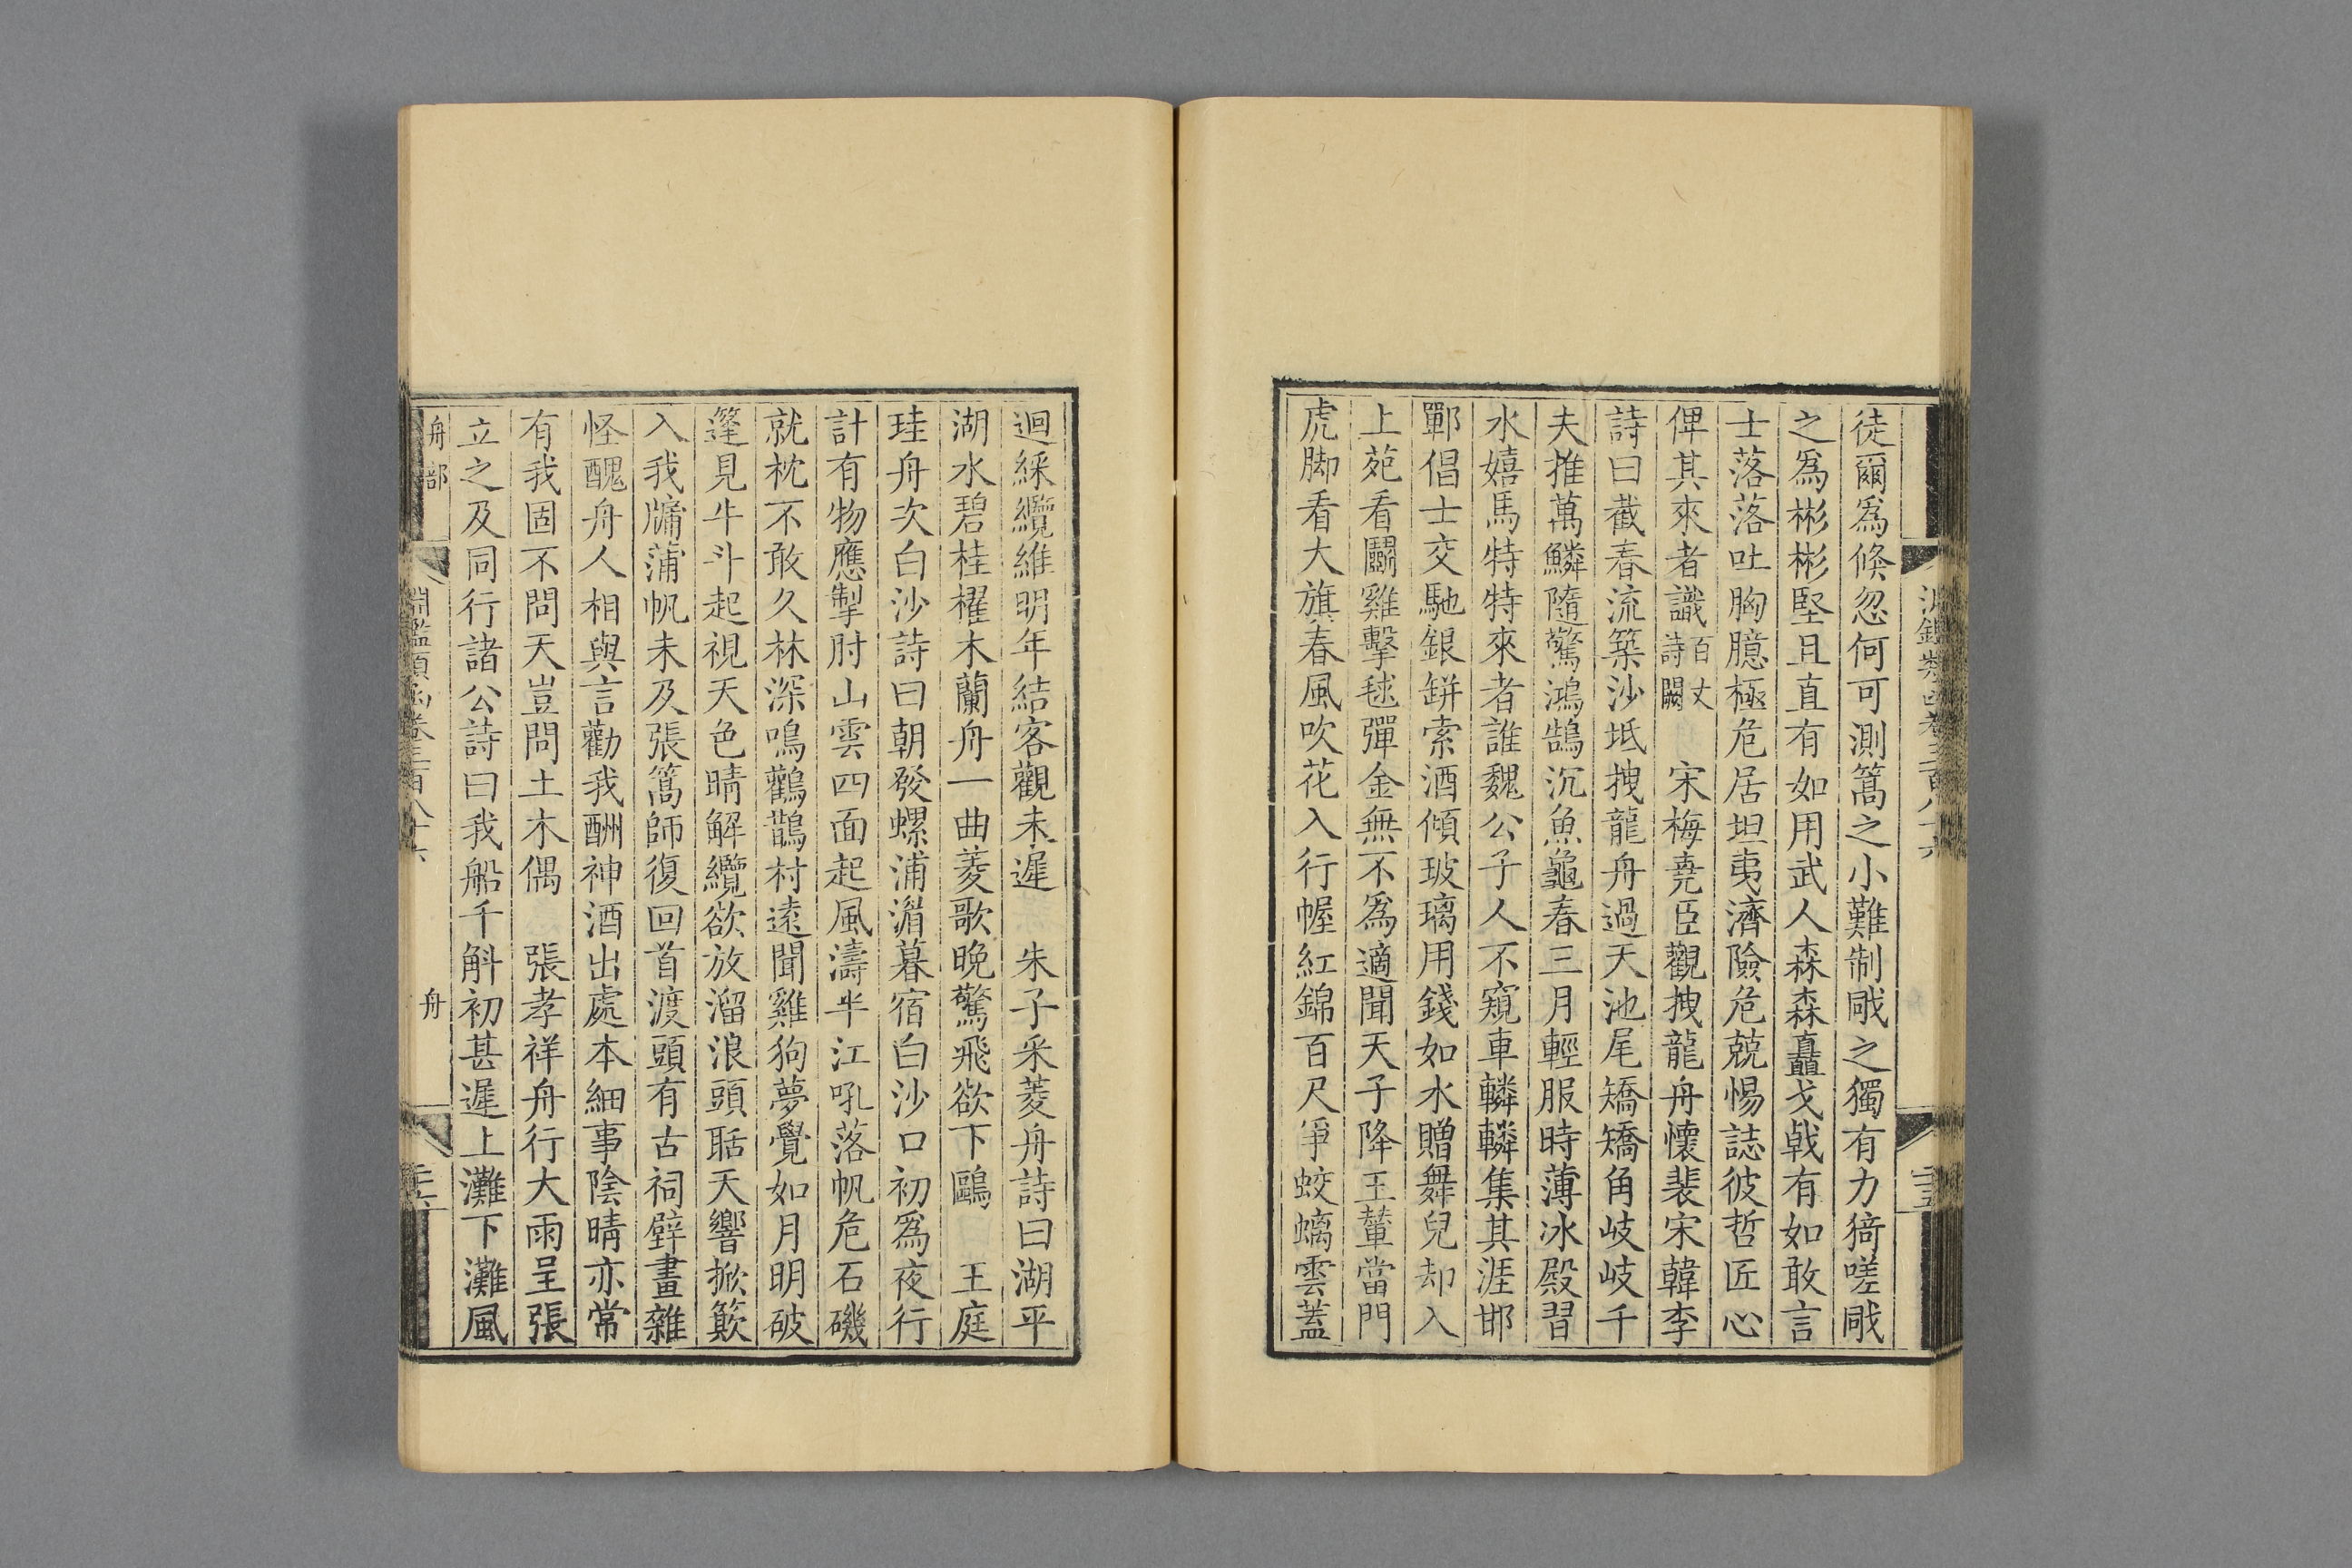 徒爾爲倐忽何可測篙之小難制戙之獨有力猗嗟戙
之爲彬彬堅且直有如用武人森森矗戈戟有如敢言
士落落吐胸臆極危居坦夷濟險危兢惕誌彼哲匠心
俾其來者識百丈詩闕 宋梅堯臣觀拽龍舟懷裴宋韓李
詩曰截春流築沙坻拽龍舟過天池尾矯矯角岐岐千
夫推萬鱗隨驚鴻鵠沉魚龜春三月輕服時薄冰殿習
水嬉馬特特來者誰魏公子人不窺車轔轔集其涯邯
鄲倡士交馳銀缾索酒傾玻璃用錢如水贈舞兒却入
上苑看鬭雞擊毬彈金無不爲適聞天子降玉輦當門
虎脚看大旗春風吹花入行幄紅錦百尺爭蛟螭雲蓋
迴綵纜維明年結客觀未遲 朱子采菱舟詩曰湖平
湖水碧桂櫂木蘭舟一曲菱歌晚驚飛欲下鷗 王庭
珪舟次白沙詩曰朝發螺浦湄暮宿白沙口初爲夜行
計有物應掣肘山雲四面起風濤半江吼落帆危石磯
就枕不敢久林深鳴鸛鵲村遠聞雞狗夢覺如月明破
篷見牛斗起視天色晴解纜欲放溜浪頭聒天響掀簸
入我牖蒲帆未及張篙師復回首渡頭有古祠壁畫雜
怪醜舟人相與言勸我酬神酒出處本細事陰晴亦常
有我固不問天豈問土木偶 張孝祥舟行大雨呈張
立之及同行諸公詩曰我船千斛初甚遲上灘下灘風
舟部
淵鑑類函卷三百八十六
舟